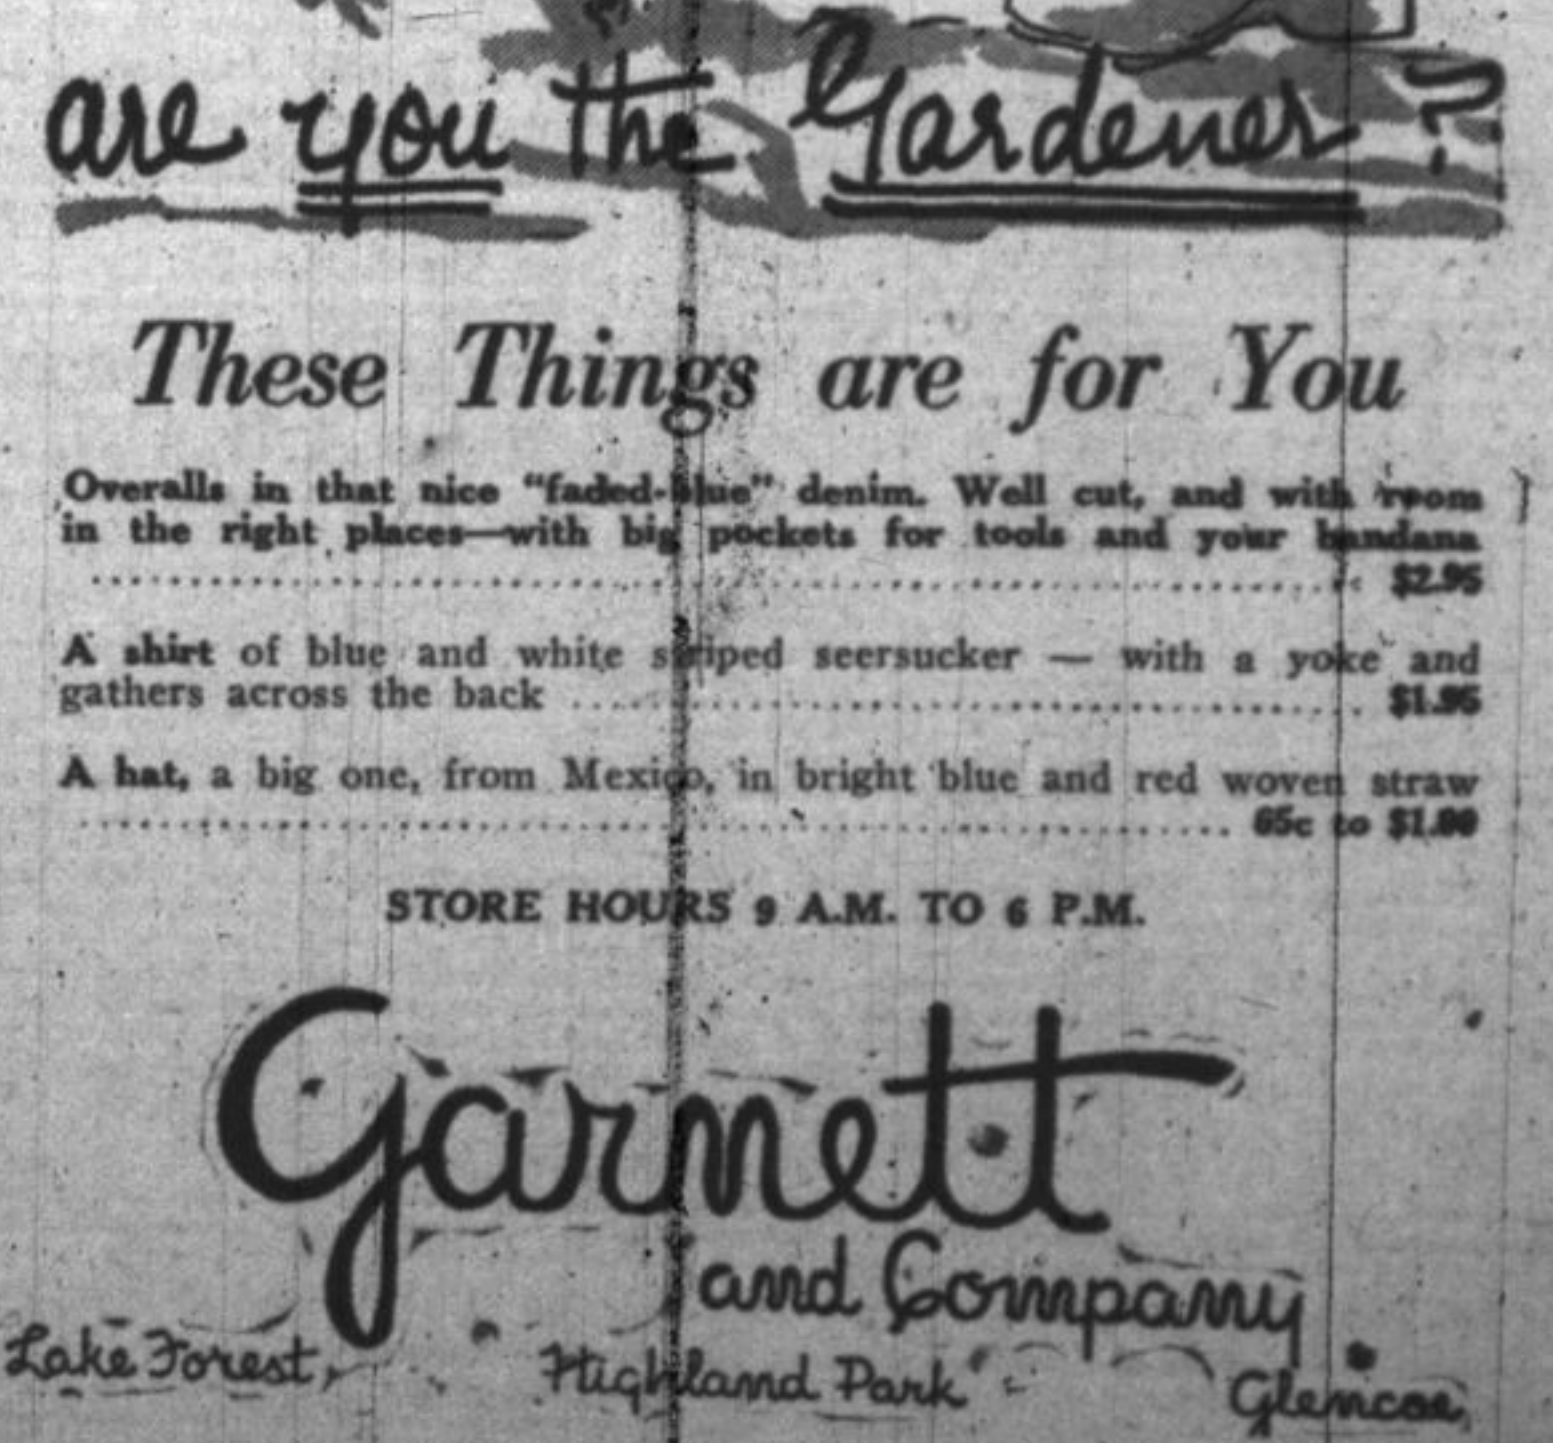 are you the Gardener?
These Things are for You
Overalls in that nice "faded-blue" denim. Well cut, and with room
in the right places—with big pockets for tools and your bandana
........ $2.95
A shirt of blue and white striped seersucker — with a yoke and
gathers across the back ........ $1.95
A hat, a big one, from Mexico, in bright blue and red woven straw
........ 65c to $1.00
STORE HOURS 9 A.M. TO 6 P.M.
Garnett
and Company
Lake Forest, Highland Park Glencoe